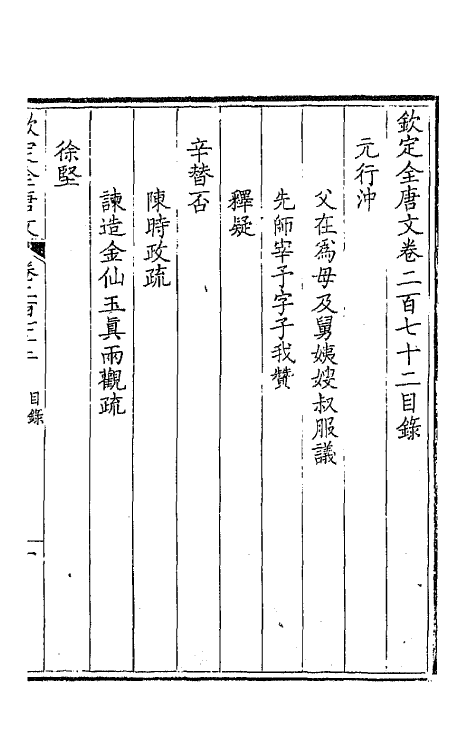 欽定全唐文卷二百七十二目錄
元行沖
父在爲母及舅姨嫂叔服議
先師宰予字子我贊
釋疑
辛替否
陳時政疏
諫造金仙玉眞兩觀疏
徐堅
欽定全唐文 卷二百七十二 目錄 一